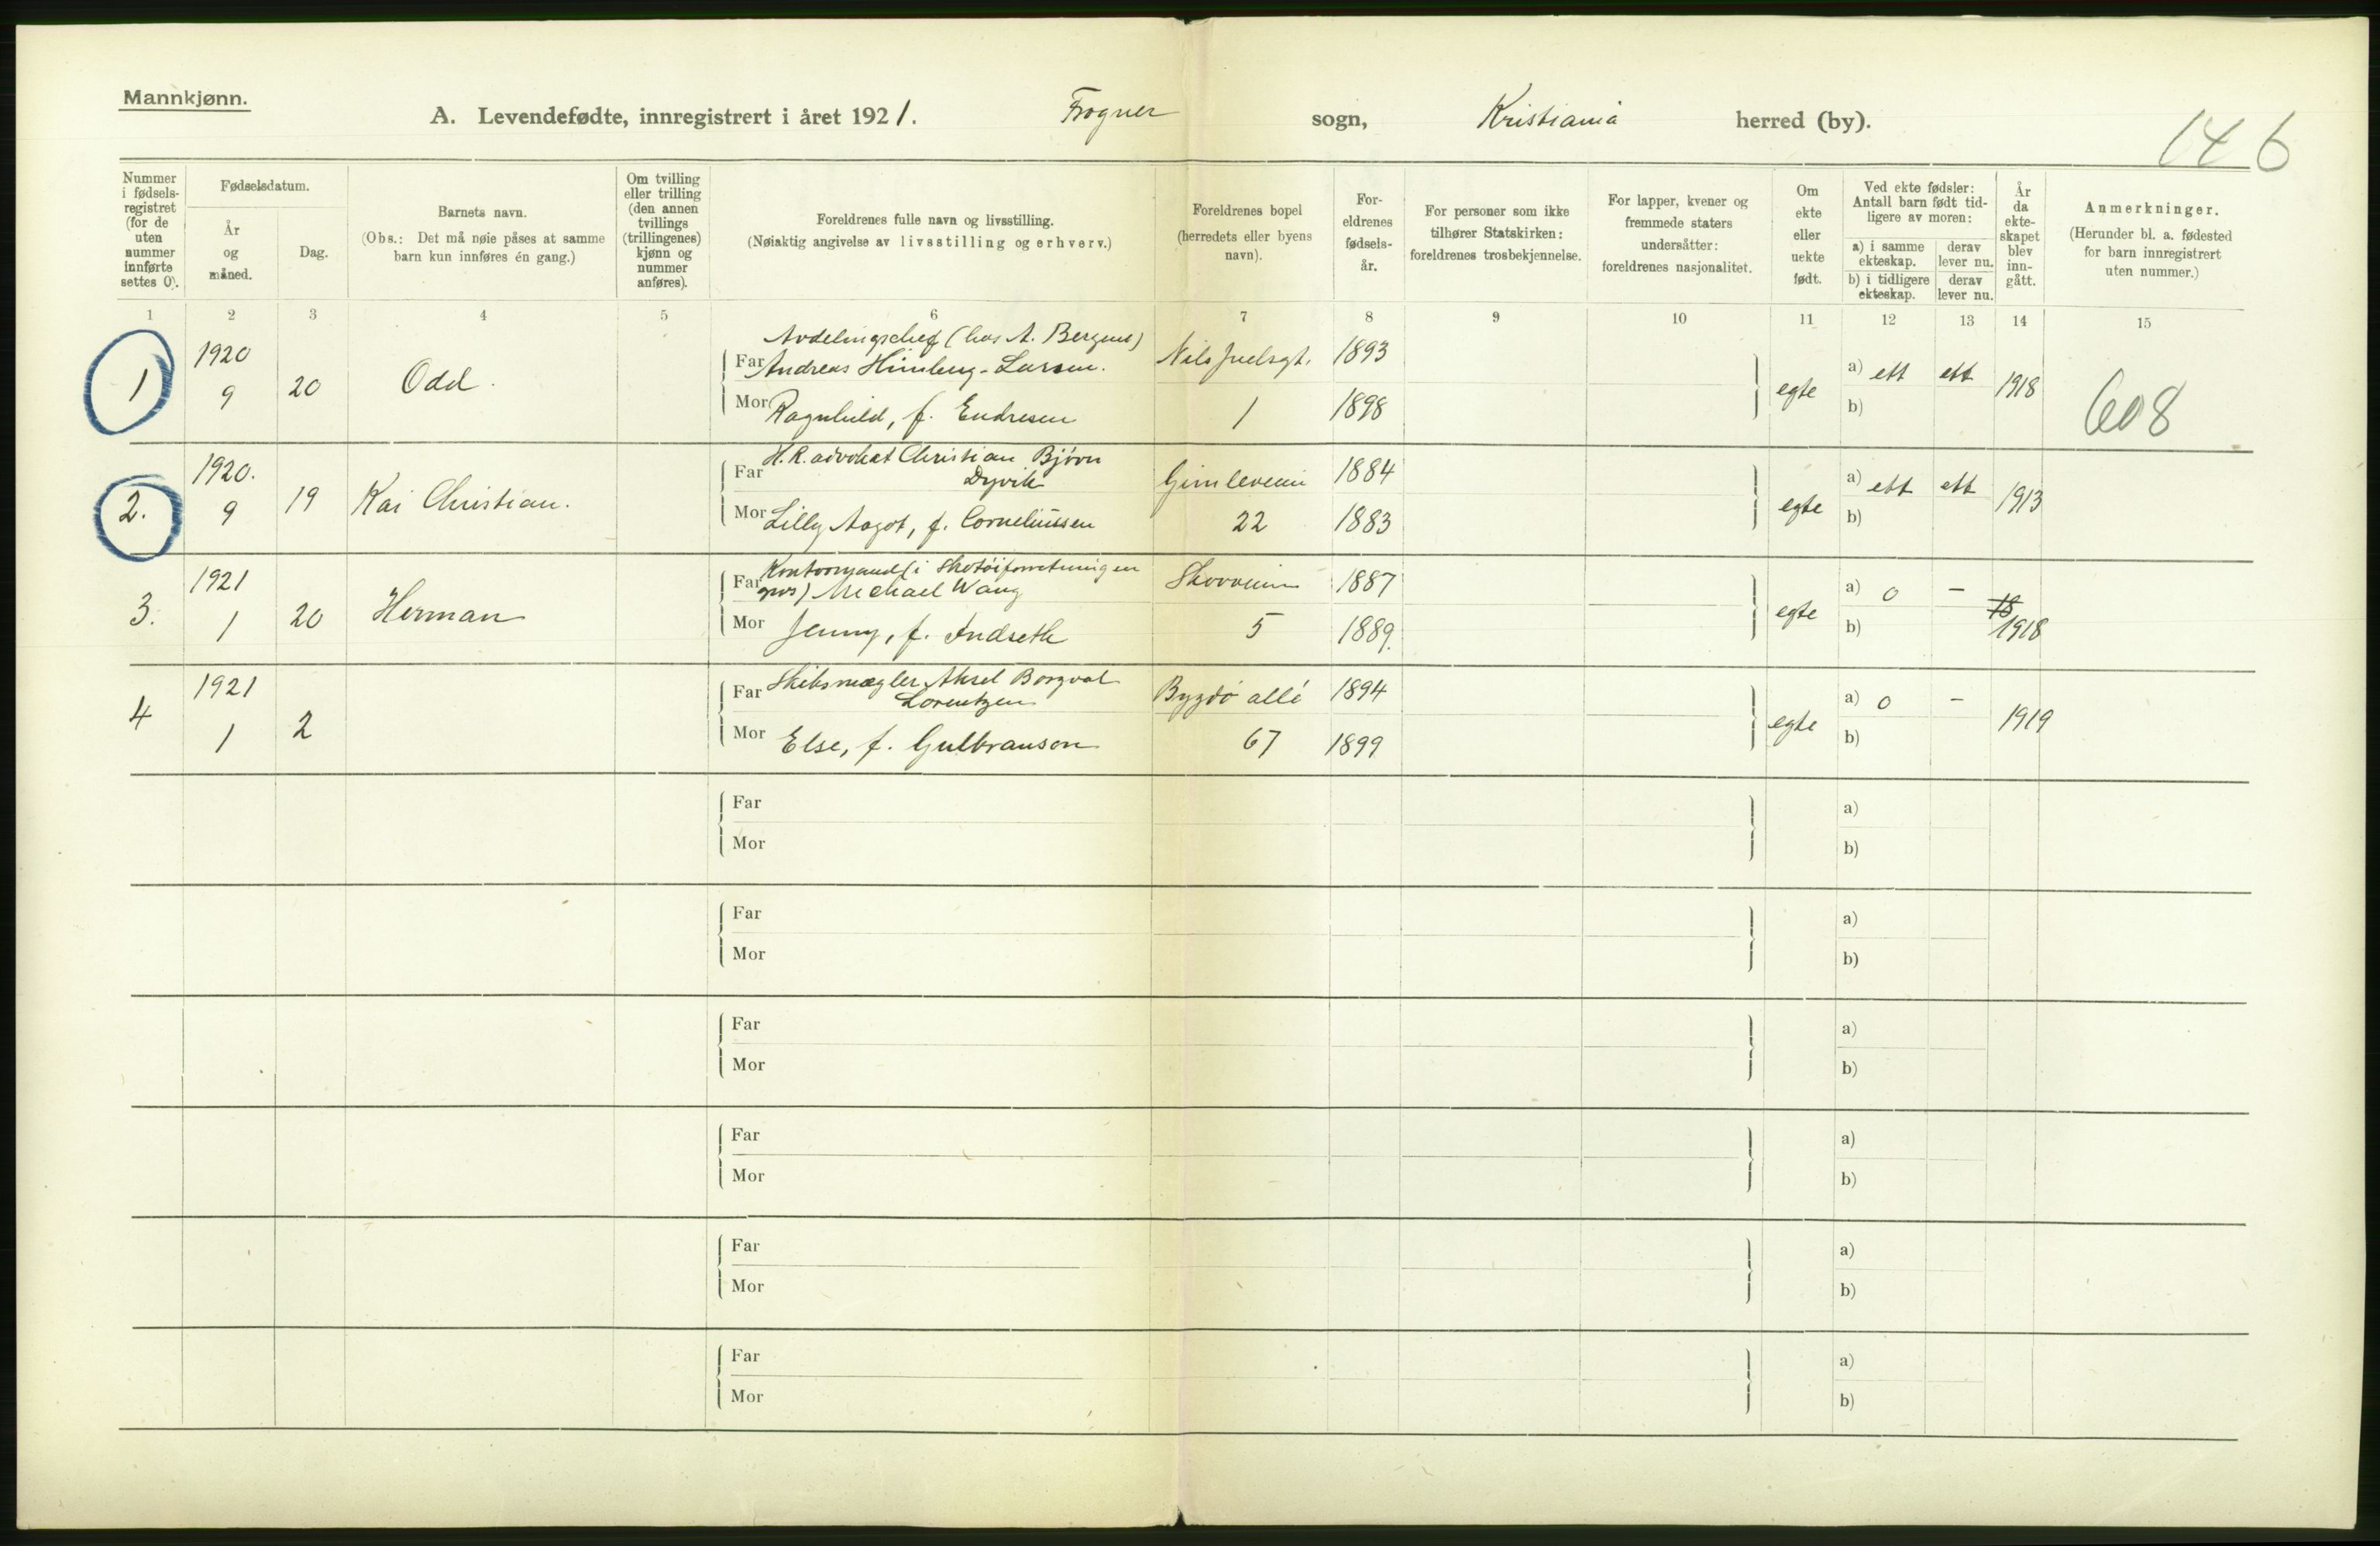 Mannkjønn.
A. Levendefødte, innregistrert i året 1921. Frogner sogn, Kristiania herred (by).
146
Nummer i fødsels-registret (for de uten nummer innførte settes 0).
Fødselsdatum.
År og måned.
Dag.
Barnets navn.
(Obs.: Det må nøie påses at samme barn kun innføres én gang.)
Om tvilling eller trilling (den annen tvillings (trillingenes) kjønn og nummer anføres).
Foreldrenes fulle navn og livsstilling.
(Nøiaktig angivelse av livsstilling og erhverv.)
Foreldrenes bopel (herredets eller byens navn).
For-eldrenes fødsels-år.
For personer som ikke tilhører Statskirken: foreldrenes trosbekjennelse.
For lapper, kvener og fremmede staters undersåtter: foreldrenes nasjonalitet.
Om ekte eller uekte født.
Ved ekte fødsler: Antall barn født tid-ligere av moren:
a) i samme ekteskap.
derav lever nu.
b) i tidligere ekteskap.
derav lever nu.
År da ekte-skapet blev inn-gått.
Anmerkninger.
(Herunder bl. a. fødested for barn innregistrert uten nummer.)
1 2 3 4 5 6 7 8 9 10 11 12 13 14 15
Avdelingschef (hos A. Bergens)
1 1920 Odd. Far Andreas Himberg-Larsen. Nils Juelsgt. 1893 a) ett ett 1918 608
9 20 Mor Ragnhild, f. Endresen 1 1898 egte b)
H.R. advokat Christian Bjørn
2. 1920. Kai Christian. Far Dyvik Gimleveien 1884 a) ett ett 1913
9 19 Mor Lilly Aagot, f. Corneliussen 22 1883 egte b)
Kontormand (i Skotøiforretning en
3. 1921 Herman Far gros) Michael Wang 1887 a) 0 – 18
1 20 Mor Jenny, f. Indseth 5 1889. egte b) 1918
Skibsmægler Aksel Borgvat
4 1921 Far Lorentzen Bygdø allé 1894 a) 0 – 1919
1 2 Mor Else, f. Gulbranson 67 1899 egte b)
Far a)
Mor b)
Far a)
Mor b)
Far a)
Mor b)
Far a)
Mor b)
Far a)
Mor b)
Far a)
Mor b)